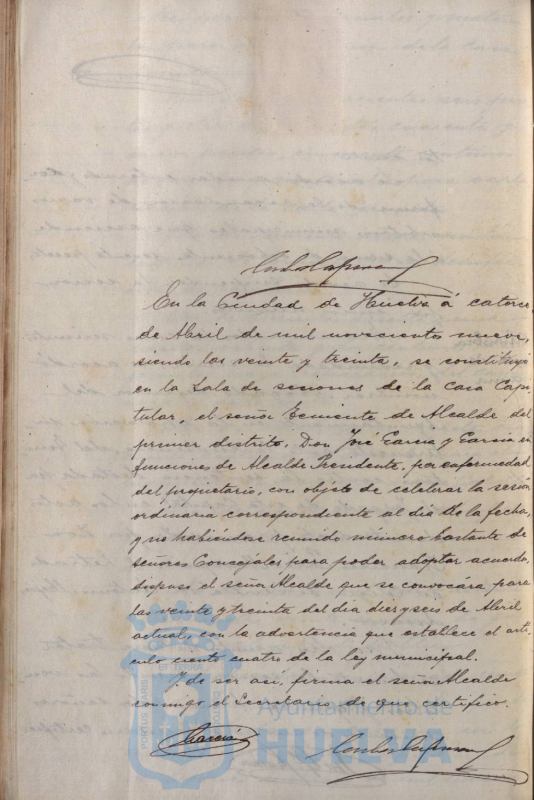 En la Ciudad de Huelva á catorce
de Abril de mil novecientos nueve,
siendo las veinte y treinta, se constituyó
en la Sala de sesiones de la Casa Capi-
tular, el señor Teniente de Alcalde del
primer distrito, Don José García y García en
funciones de Alcalde Presidente, por enfermedad
del propietario, con objeto de celebrar la sesión
ordinaria correspondiente al día de la fecha,
y no habiéndose reunido número bastante de
señores Concejales para poder adoptar acuerdo,
dispuso el señor Alcalde que se convocára para
las veinte y treinta del día diez y seis de Abril
actual, con la advertencia que establece el artí-
culo ciento cuatro de la ley municipal.
Y de ser así, firma el señor Alcalde
conmigo el Secretario de que certifico.
García
Ayuntamiento de
HUELVA
PORTUS MARIS